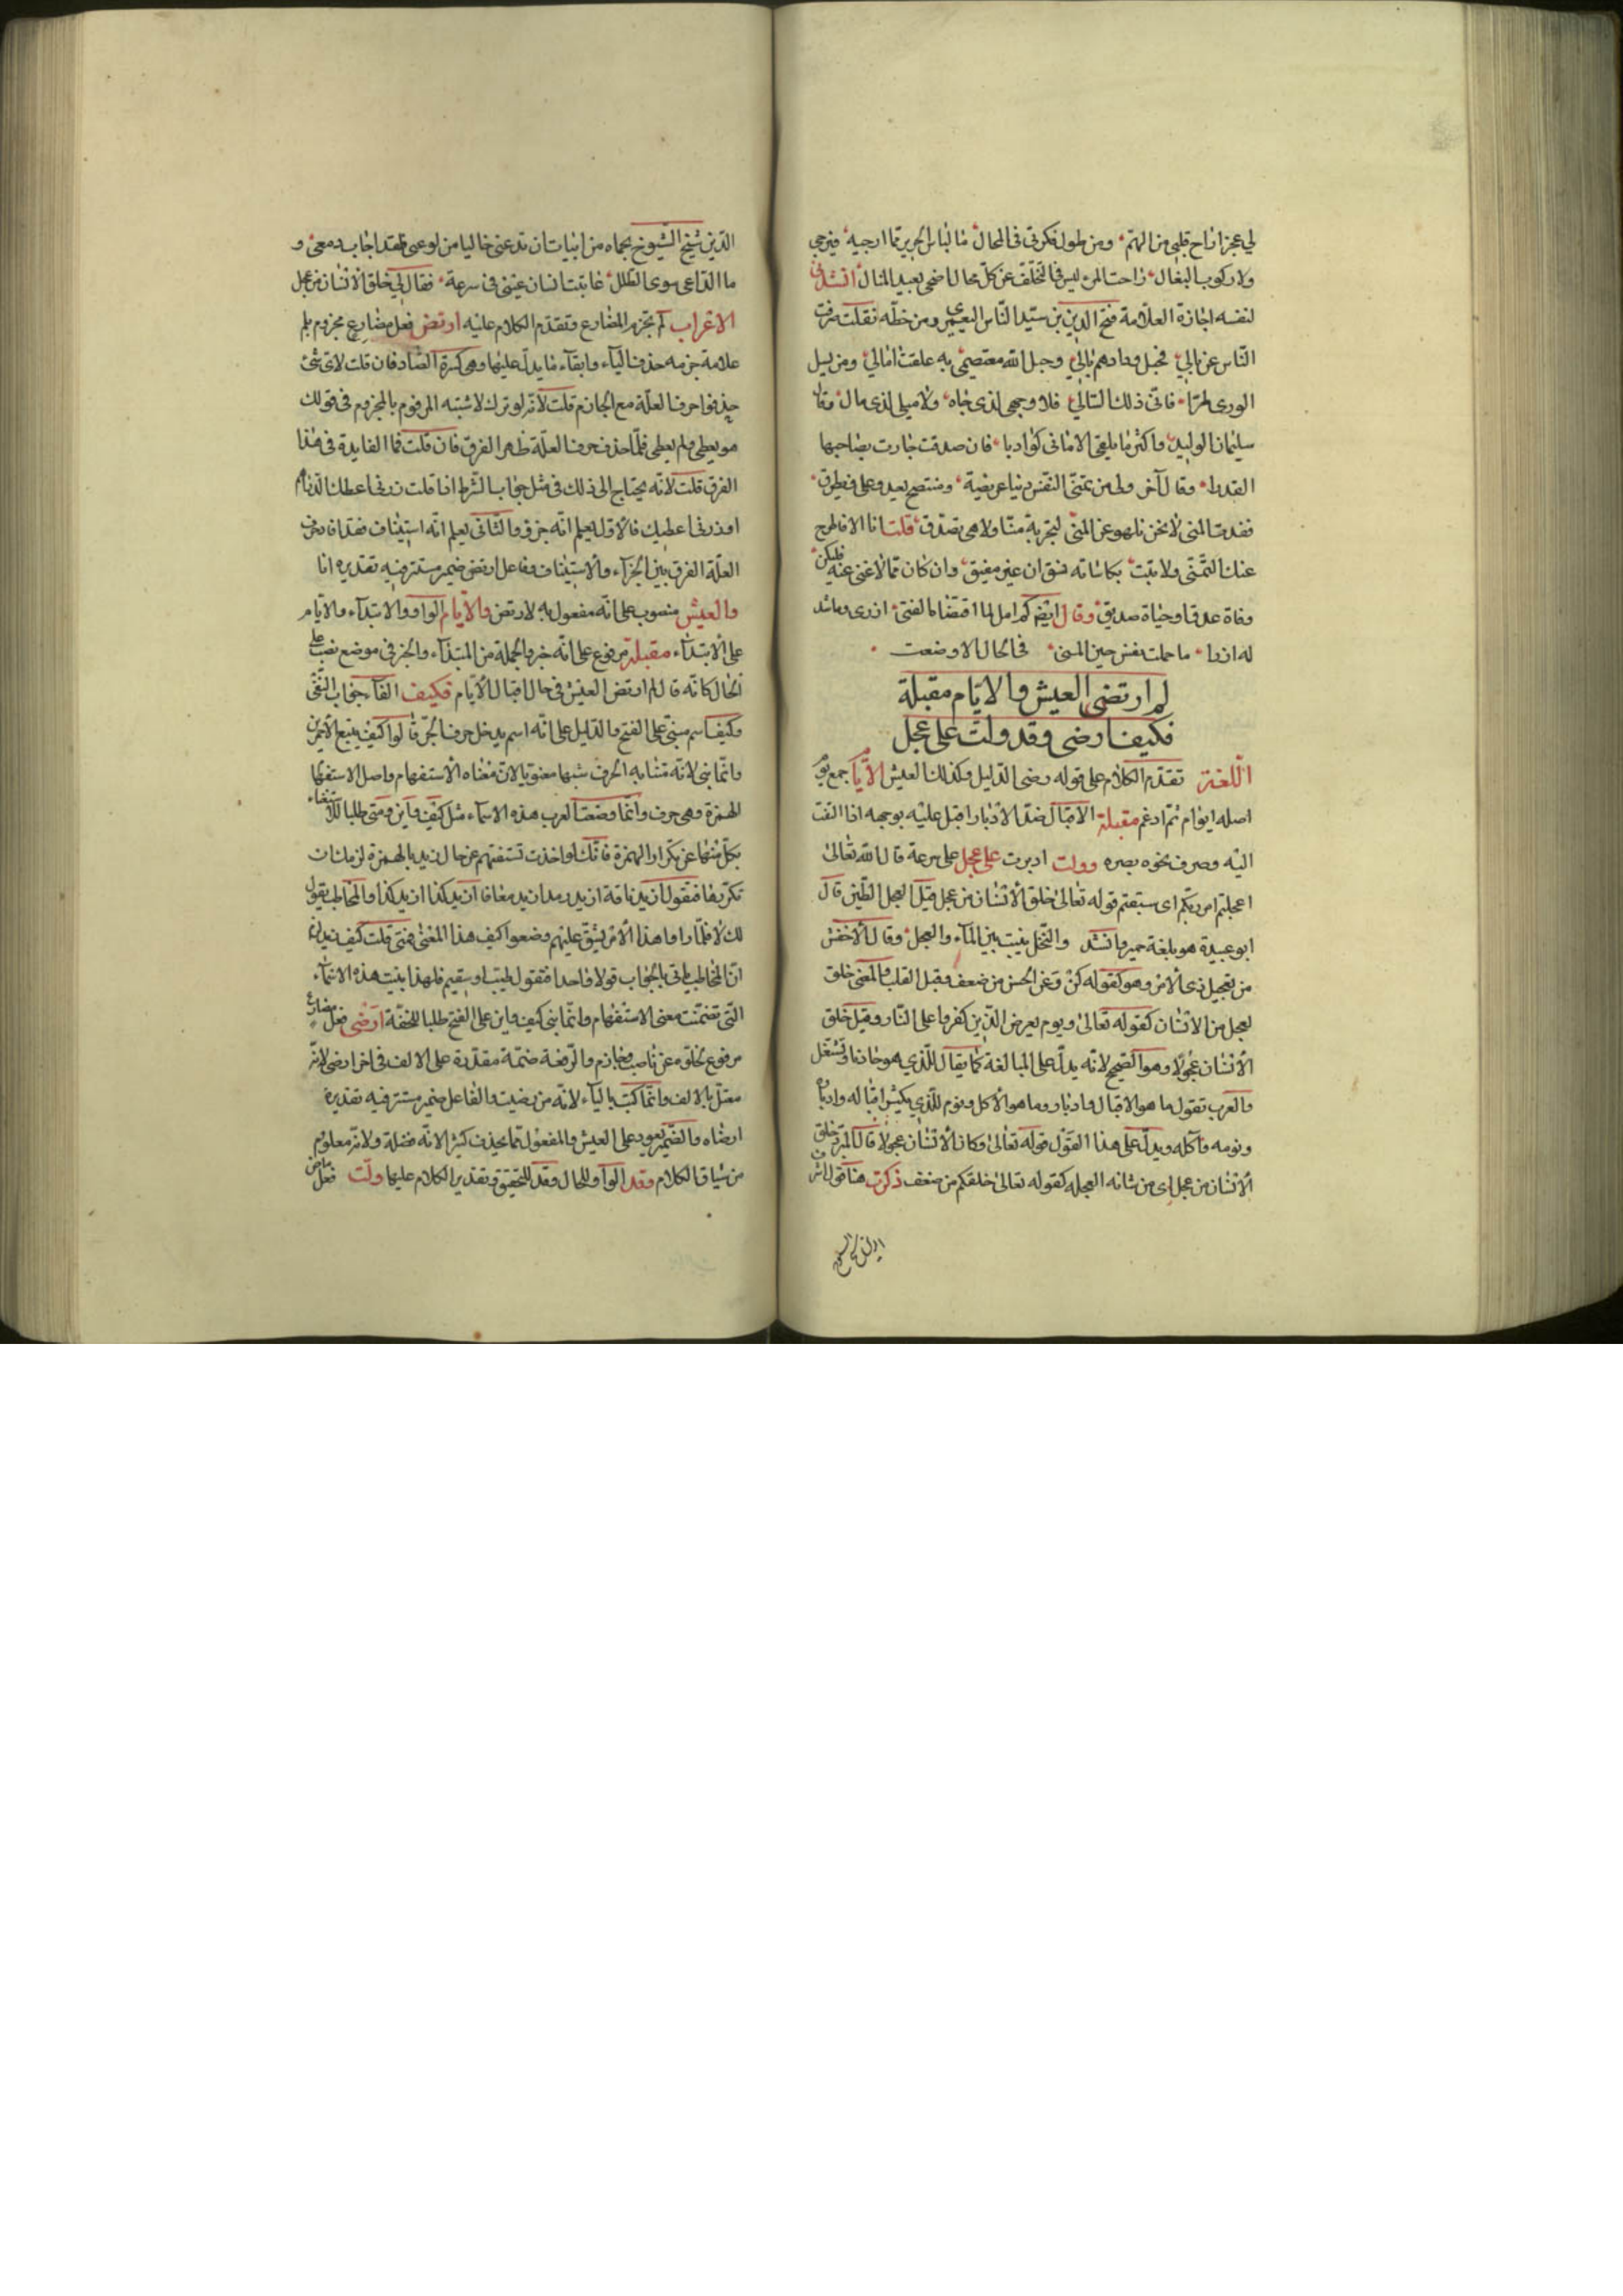 لي عجز اراح قلبي من الهتم ومن طول فكرتي في المحال ما لباس الحرير مما ارجيه فيرجى
ولا ركوب البغال راحت المرء ليس في التخلف عن كل محال اضحى بعيد المنال انشدني
لنفسه اجازة العلامة فتح الدين بن سيد الناس اليعمري ومن خطه نقلت صرفت
الناس عن بالي فحبل ودادهم بالي وحبل الله معتصمي به علقت امالي ومن يسل
الورى طرا فاني ذلك السالي فلا وجهي لذي جاه ولا ميلي لذي مال وقال
سليمان الوليد واكثر ما يلقى الاماني كواذبا فان صدقت جازت بصاحبها
القدرا وقال آخر ولي من تمني النفس دنيا عريضة
فقدت المنى لا نحن نلهو عن المنى لتجربة منا ولا هي تصدق قلت انا الا فاطرح
عنك التمني ولا تبت بكاساته وان كان مما لا غنى عنه فليكن
وفاة عدو او حياة صديق وقال ايضا كم امل لما اقتضاه الفتى ازرى وما شد
له ازرا ما حملت نفس جنين المنى في الحال الا وضعت
لم ارتضي العيش والايام مقبلة
فكيف ارضى وقد ولت على عجل
اللغة تقدم الكلام على قوله رضى الذليل وكذلك العيش الايام جمع يوم
اصله ايوام ثم ادغم مقبلة الاقبال ضد الادبار اقبل عليه بوجهه اذا التفت
اليه وصرف نحوه بصره وولت ادبرت على عجل على سرعة قال الله تعالى
اعجلتم امر ربكم اى سبقتم قوله تعالى خلق الانسان من عجل قيل العجل الطين قال
ابو عبيدة هو بلغة حمير وانشد والنخل ينبت بين الماء والعجل وقال الاخفش
من تعجيل في الامر وهو كقوله كن وعن الحسن من ضعف وقيل القلب والمعنى خلق
العجل من الانسان كقوله تعالى ويوم يعرض الذين كفروا على النار وقيل خلق
الانسان عجولا وهو الصحيح لانه يدل على المبالغة كما يقال للذي هو حاذ نار تشتعل
والعرب تقول ما هو الا اقبال وادبار وما هو الا اكل ونوم للذي يكثر اقباله وادباره
ونومه واكله ويدل على هذا القول قوله تعالى وكان الانسان عجولا قال المبرد خلق
الانسان من عجل اي من شانه العجلة كقوله تعالى خلقكم من ضعف ذكرت هنا قول شرف
الدين شيخ الشيوخ بحماه من ابيات ان تدعني خاليا من لوعتي فلقد اجاب دمعي و
ما الداعي سوى الطلل عاتبت انسان عيني في سرعة فقال لي خلق الانسان من عجل
الاعراب لم تجزم المضارع وتقدم الكلام عليه ارتض فعل مضارع مجزوم بلم
علامة جزمه حذف الياء وابقاء ما يدل عليها وهي كسرة الضاد فان قلت لاي شئ
حذفوا حرف العلة مع الجازم قلت لانه لو ترك لاشتبه المرفوع بالمجزوم في قولك
هو يعطي ولم يعطي فلما حذف حرف العلة ظهر الفرق فان قلت فما الفايدة في هذا
الفرق قلت لانه يحتاج الى ذلك في مثل جواب الشرط اذا قلت زرني اعطك الدنانير
او زرني اعطيك فالاول يعلم انه جزم والثاني يعلم انه استيناف فقد افاد حرف
العلة الفرق بين الجزاء والاستيناف وفاعل ارتض ضمير مستتر فيه تقديره انا
والعيش منصوب على انه مفعول به لارتض والايام الواو واو الابتداء والايام
على الابتداء مقبلة مرفوع على انه خبر والجملة من المبتداء والخبر في موضع نصب على
الحال كانه قال لم ارتض العيش في حال اقبال الايام فكيف الفاء جواب النفي
وكيف اسم مبني على الفتح والدليل على انه اسم يدخل حرف الجر قالوا كيف يبيع الاحمرين
وانما بني لانه شابه الحرف شبها معنويا لان معناه الاستفهام واصل الاستفهام
الهمزة وهي حرف وانما وضعت العرب هذه الاسماء مثل كيف واين ومتى طلبا للاستغناء
بكل منها عن تكرار الهمزة فانك لو اخذت تستفهم عن حال زيد بالهمزة لزمك ان
تكررها فتقول ازيد ناقة ازيد رمد ازيد معافا ازيد كذا ازيد كذا والمخاطب يقول
لك لا فلما راوا هذا الامر يشق عليهم وضعوا كيف لهذا المعنى فمتى قلت كيف زيد لزم
ان المخاطب ياتي بالجواب قولا واحدا فتقول طيب او سقيم فلهذا بنيت هذه الاسماء
التي تضمنت معنى الاستفهام وانما بني كيف واين على الفتح طلبا للخفة ارضى فعل مضارع
مرفوع لخلوه عن ناصب وجازم والرفعة ضمة مقدرة على الالف في اخر ارضى لانه
معتل بالالف وانما كتبت بالياء لانه من رضيت والفاعل ضمير مستتر فيه تقديره
ارضاه والضمير يعود على العيش والمفعول مما يحذف كثيرا لانه فضلة ولانه معلوم
من سياق الكلام وقد الواو للحال وقد للتحقيق وتقدير الكلام عليها ولت فعل ماض
الدين شيخ الشيوخ